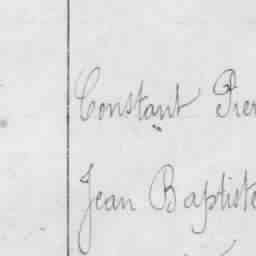 Constant Pier
Jean Baptiste